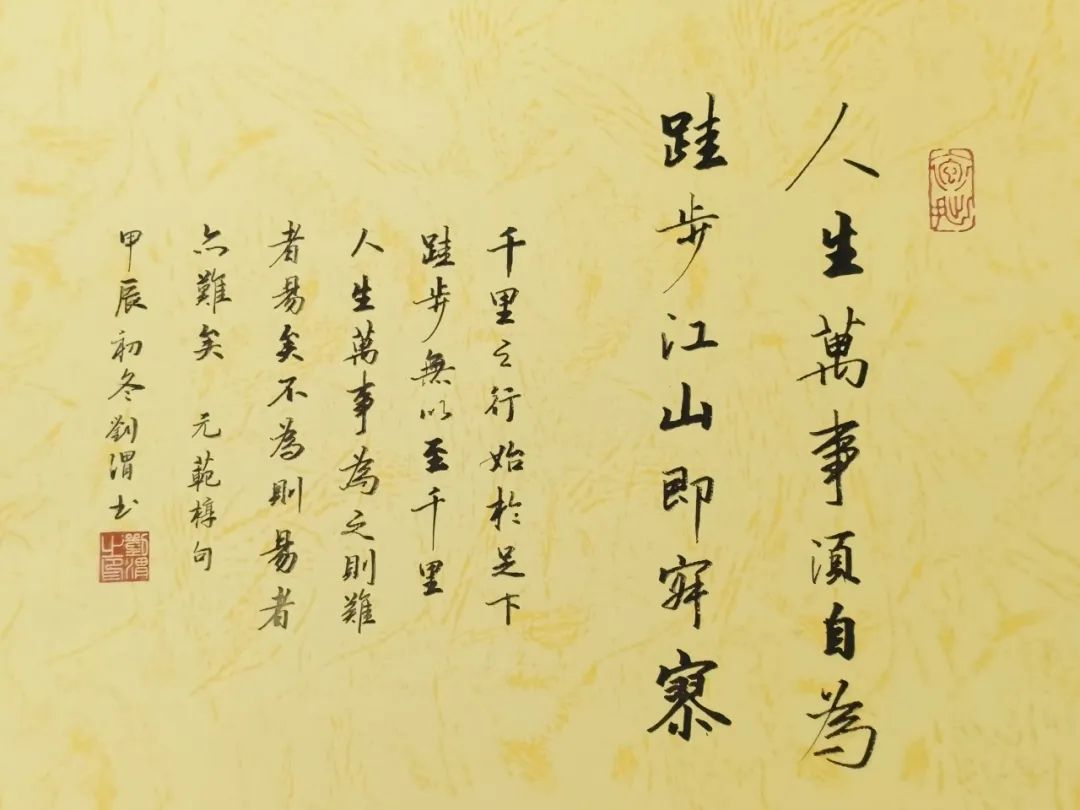 人生萬事須自為
跬步江山即
千里之行始於足下
跬步無以至千里
人生萬事為之則難
者易矣不為則易者
亦難矣 元範梈句
甲辰初冬劉渭书
劉渭之印